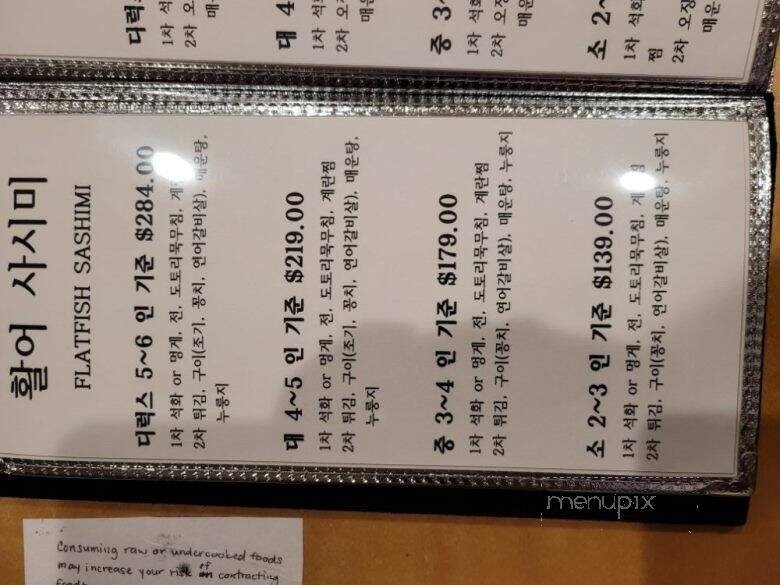 디럭스
1차 석
2차 오
매운
대 4
1차 석화
2차 오징
매운
중 3~
1차 석화
2차 오징
매운
소 2~
1차 석화
찜
2차 오징
매운
활어 사시미
FLATFISH SASHIMI
디럭스 5~6 인 기준 $284.00
1차 석화 or 멍게, 전, 도토리묵무침, 계란찜
2차 튀김, 구이(조기, 꽁치, 연어갈비살), 매운탕,
누룽지
대 4~5 인 기준 $219.00
1차 석화 or 멍게, 전, 도토리묵무침, 계란찜
2차 튀김, 구이(조기, 꽁치, 연어갈비살), 매운탕,
누룽지
중 3~4 인 기준 $179.00
1차 석화 or 멍게, 전, 도토리묵무침, 계란찜
2차 튀김, 구이(꽁치, 연어갈비살), 매운탕, 누룽지
소 2~3 인 기준 $139.00
1차 석화 or 멍게, 전, 도토리묵무침, 계 찜
2차 튀김, 구이(꽁치, 연어갈비살), 매운탕, 누룽지
Consuming raw or undercooked foods
may increase your risk of contracting
menupix